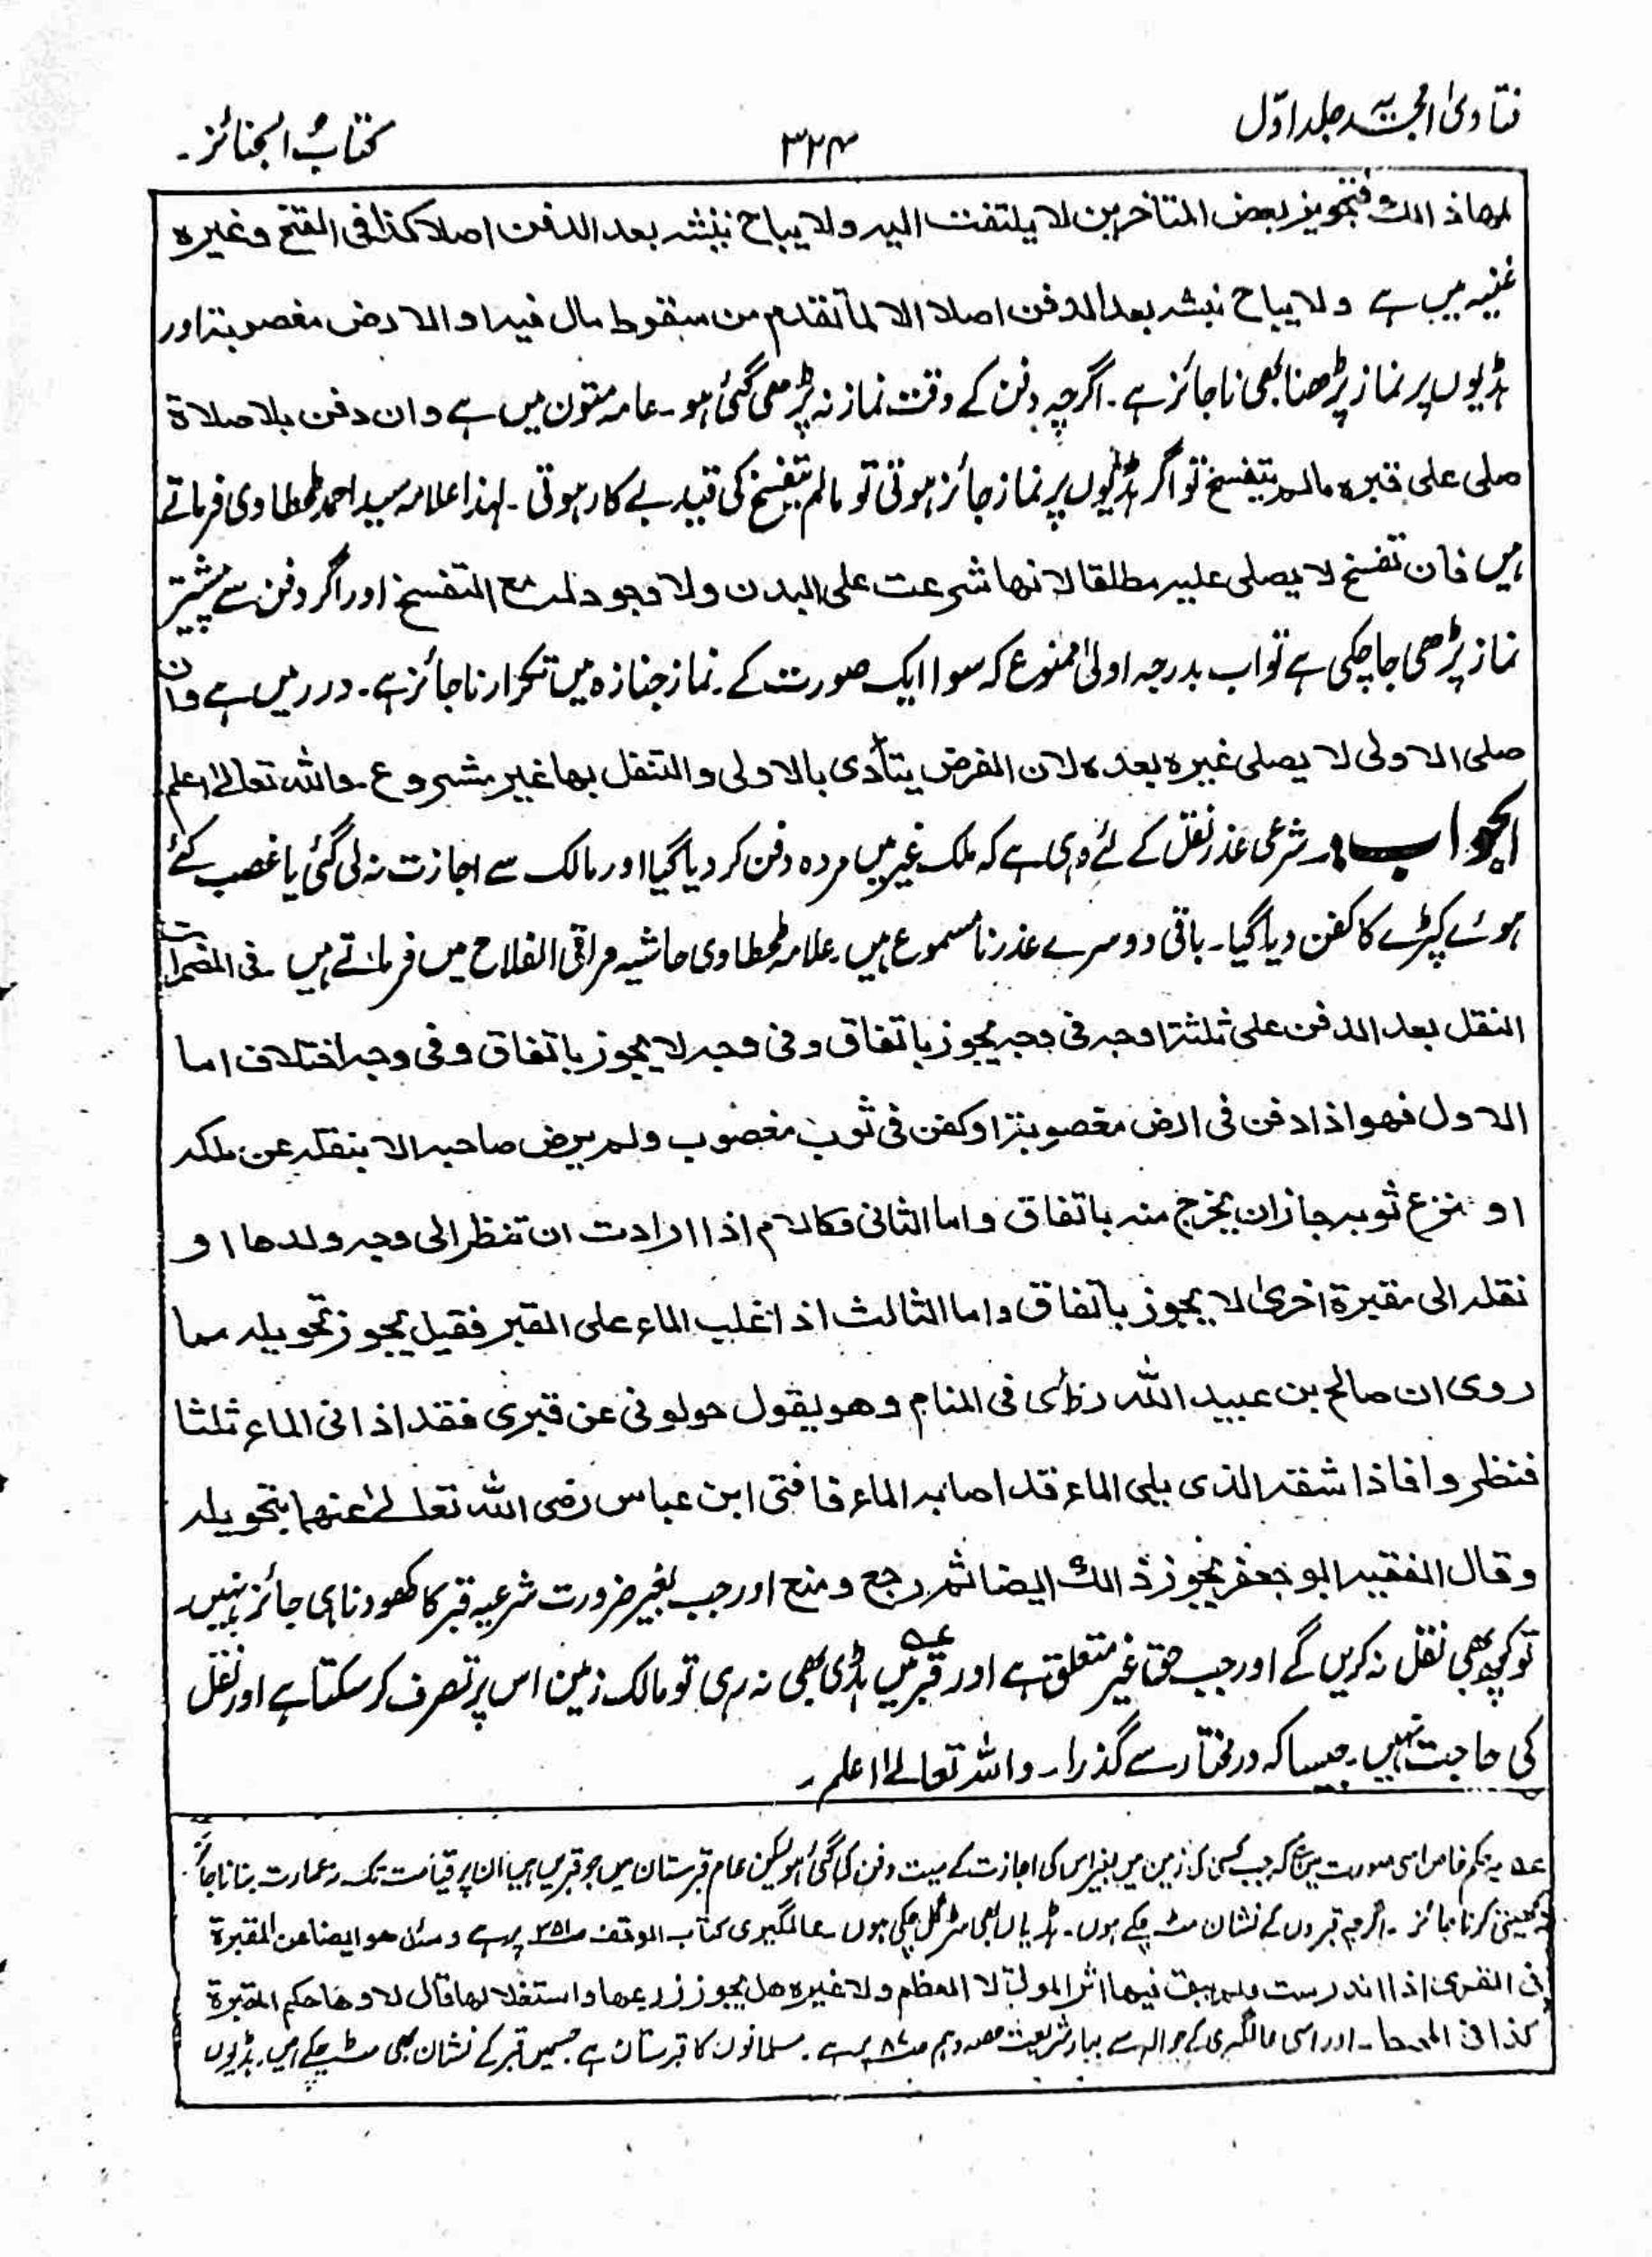 فتاویٰ امجدیہ جلد اوّل
۳۲۴
کتابُ الجنائز۔
لها ذالك فتجويز بعض المتاخرين لا يلتفت اليه ولا يباح نبشه بعد الدفن اصلا كذا فى الفتح وغيره
غنیہ میں ہے ولا يباح نبشه بعد الدفن اصلا الا لما تقدم من سقوط مال فيه او الارض مغصوبة اور
ہڈیوں پر نماز پڑھنا بھی ناجائز ہے۔ اگرچہ دفن کے وقت نماز نہ پڑھی گئی ہو۔ عامہ متون میں ہے وان دفن بلا صلاة
صلى على قبره مالم يتفسخ تو اگر ہڈیوں پر نماز جائز ہوتی تو مالم یتفسخ کی قید بے کار ہوتی۔ لہذا علامہ سید احمد طحطاوی فرماتے
ہیں فان تفسخ لا يصلى عليه مطلقا لانها شرعت على البدن ولا وجود له مع التفسخ اور اگر دفن سے پیشتر
نماز پڑھی جاچکی ہے تو اب بدرجہ اولیٰ ممنوع کہ سوا ایک صورت کے نماز جنازہ میں تکرار ناجائز ہے۔ درر میں ہے وان
صلى الاولى لا يصلى غيره بعده لان الفرض يتأدى بالاولى والتنفل بها غير مشروع۔ والله تعالىٰ اعلم
الجواب:۔ شرعی عذر نقل کے لئے وہی ہے کہ ملک غیر میں مردہ دفن کر دیا گیا اور مالک سے اجازت نہ لی گئی یا غصب کئے
ہوئے کپڑے کا کفن دیا گیا۔ باقی دوسرے عذر نامسموع ہیں علامہ طحطاوی حاشیہ مراقی الفلاح میں فرماتے ہیں۔ فى المضمرات
النقل بعد الدفن على ثلثة اوجه فى وجه يجوز باتفاق وفى وجه لا يجوز باتفاق وفى وجه اختلاف اما
الاول فهو اذا دفن فى ارض مغصوبة او كفن فى ثوب مغصوب ولم يرض صاحبه الا بنقله عن ملكه
او نزع ثوبه جاز ان يخرج منه باتفاق واما الثانى فكالام اذا ارادت ان تنظر الى وجه ولدها او
نقله الى مقبرة اخرىٰ لا يجوز باتفاق واما الثالث اذا غلب الماء على القبر فقيل يجوز تحويله لما
روى ان صالح بن عبيد الله رؤى فى المنام وهو يقول حولونى عن قبرى فقد اذانى الماء ثلثا
فنظروا فاذا شقه الذى يلى الماء قد اصابه الماء فافتى ابن عباس رضى الله تعالىٰ عنهما بتحويله
وقال الفقيه ابو جعفر يجوز ذالك ايضا ثم رجع ومنع اور جب بغیر ضرورت شرعیہ قبر کا کھودنا ہی جائز نہیں۔
تو کچھ بھی نقل نہ کریں گے اور جب حق غیر متعلق ہے اور قبر میں عہ ہڈی بھی نہ رہی تو مالک زمین اس پر تصرف کر سکتا ہے اور نقل
کی حاجت نہیں۔ جیسا کہ درمختار سے گذرا۔ واللہ تعالےٰ اعلم۔
عہ یہ حکم خاص اسی صورت میں ہے کہ جب کسی کی زمین میں بغیر اس کی اجازت کے میت دفن کی گئی ہو لیکن عام قبرستان میں جو قبریں ہیں ان پر قیامت تک نہ عمارت بنانا جائز
نہ کھیتی کرنا جائز۔ اگرچہ قبروں کے نشان مٹ چکے ہوں۔ ہڈیاں بھی سڑ گل چکی ہوں۔ عالمگیری کتاب الوقف ص۳۵۱ پر ہے وسئل هو ايضا عن المقبرة
فى القرى اذا اندرست ولم يبق فيها اثر الموتى لا العظم ولا غيره هل يجوز زرعها واستغلالها قال لا ولها حكم المقبرة
كذا فى المحيط۔ اور اسی عالمگیری کے حوالہ سے بہار شریعت حصہ دہم ص۸۷ پر ہے۔ مسلمانوں کا قبرستان ہے جس میں قبر کے نشان بھی مٹ چکے ہیں۔ ہڈیوں